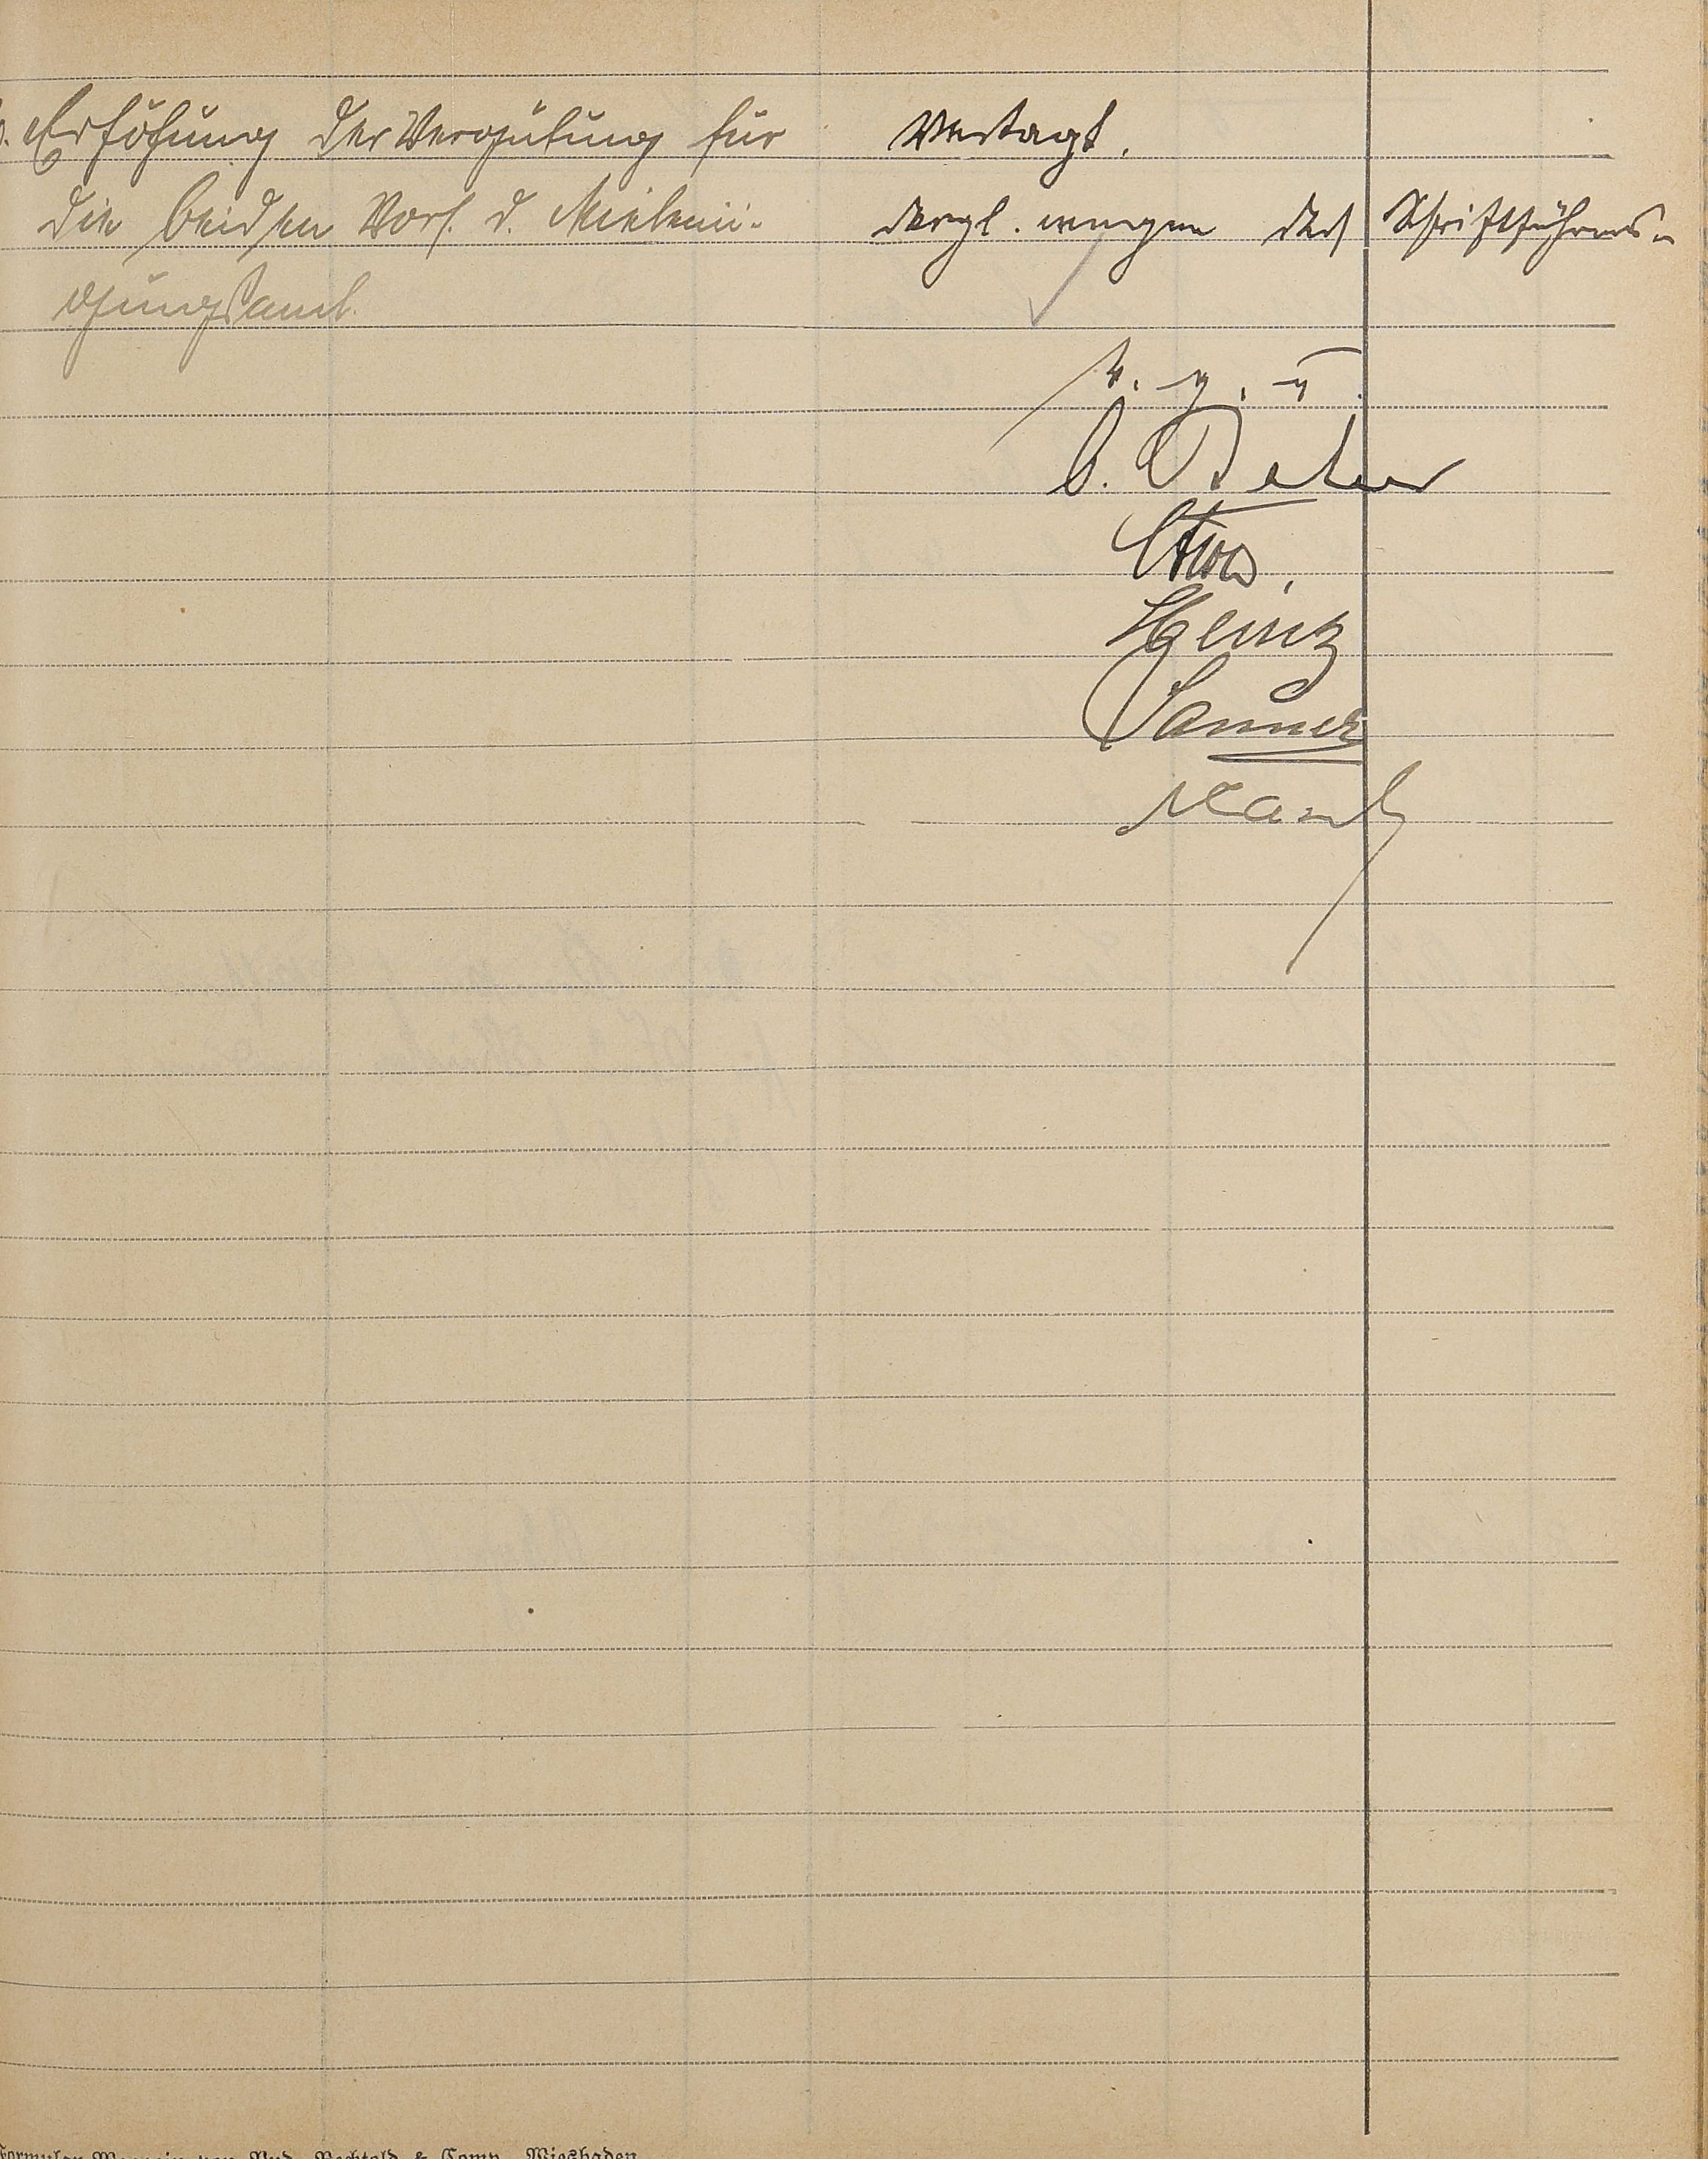 Erhöhung der Vergütung für
die beiden Vors. d. Mieteini-
gungsamt.
Vertagt.
dergl. wegen des Schriftführers.
v. g. u.
Heinz
Sauner
Formular-Magazin von Rud. Bechtold & Comp. Wiesbaden